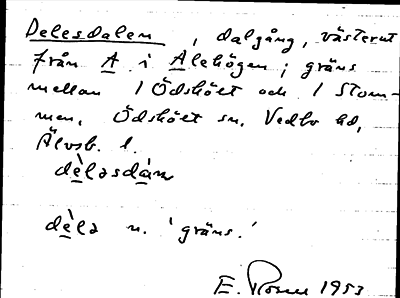 Delesdalen, dalgång, västerut
från A i Alehögen; gräns
mellan 1 Ödskölt och 1 Stom-
men, Ödskölt sn, Vedbo hd,
Älvsb. l.
dè̱ləsdá̱n
dè̱lə n. 'gräns.'
E. 1953